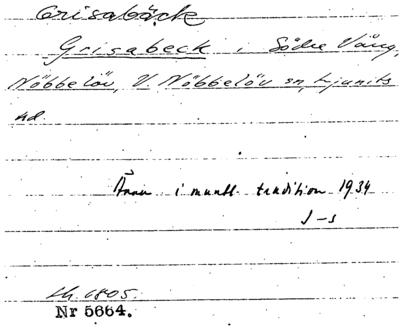 Grisabäck
Grisabeck, Södre Vång,
Nöbbelöv, V. Nöbbelöv sn, Ljunits
hd.
Ännu i muntl. tradition 1934
J-s
Lh. 1805.
Nr 5664.